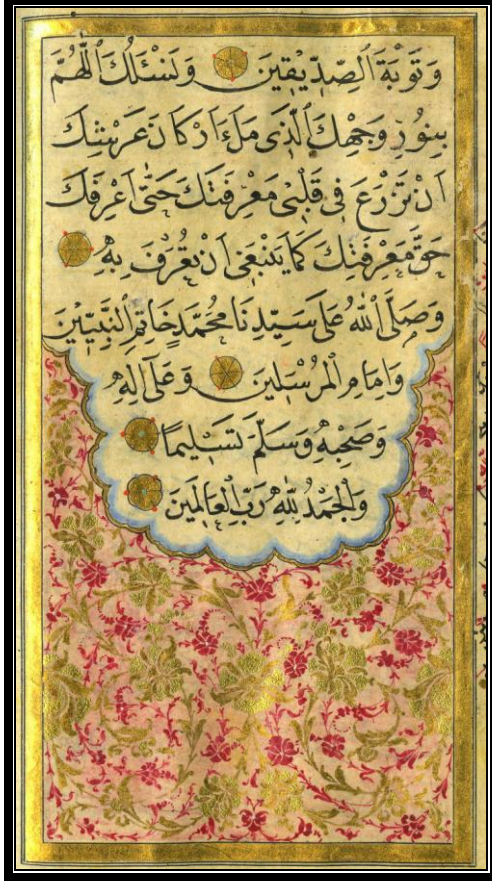 وَتَوْبَةَ الصِّدِّيقِينَ وَنَسْئَلُكَ اللّٰهُمَّ
بِنُورِ وَجْهِكَ الَّذِى مَلَءَ اَرْكَانَ عَرْشِكَ
اَنْ تَزْرَعَ فِى قَلْبِى مَعْرِفَتَكَ حَتّٰى اَعْرِفَكَ
حَقَّ مَعْرِفَتِكَ كَمَا يَنْبَغِى اَنْ تُعْرَفَ بِهِ
وَصَلَّى اللّٰهُ عَلَى سَيِّدِنَا مُحَمَّدٍ خَاتِمِ النَّبِيِّينَ
وَاِمَامِ الْمُرْسَلِينَ وَعَلَى اٰلِهِ
وَصَحْبِهِ وَسَلَّمَ تَسْلِيمًا
وَالْحَمْدُ لِلّٰهِ رَبِّ الْعَالَمِينَ